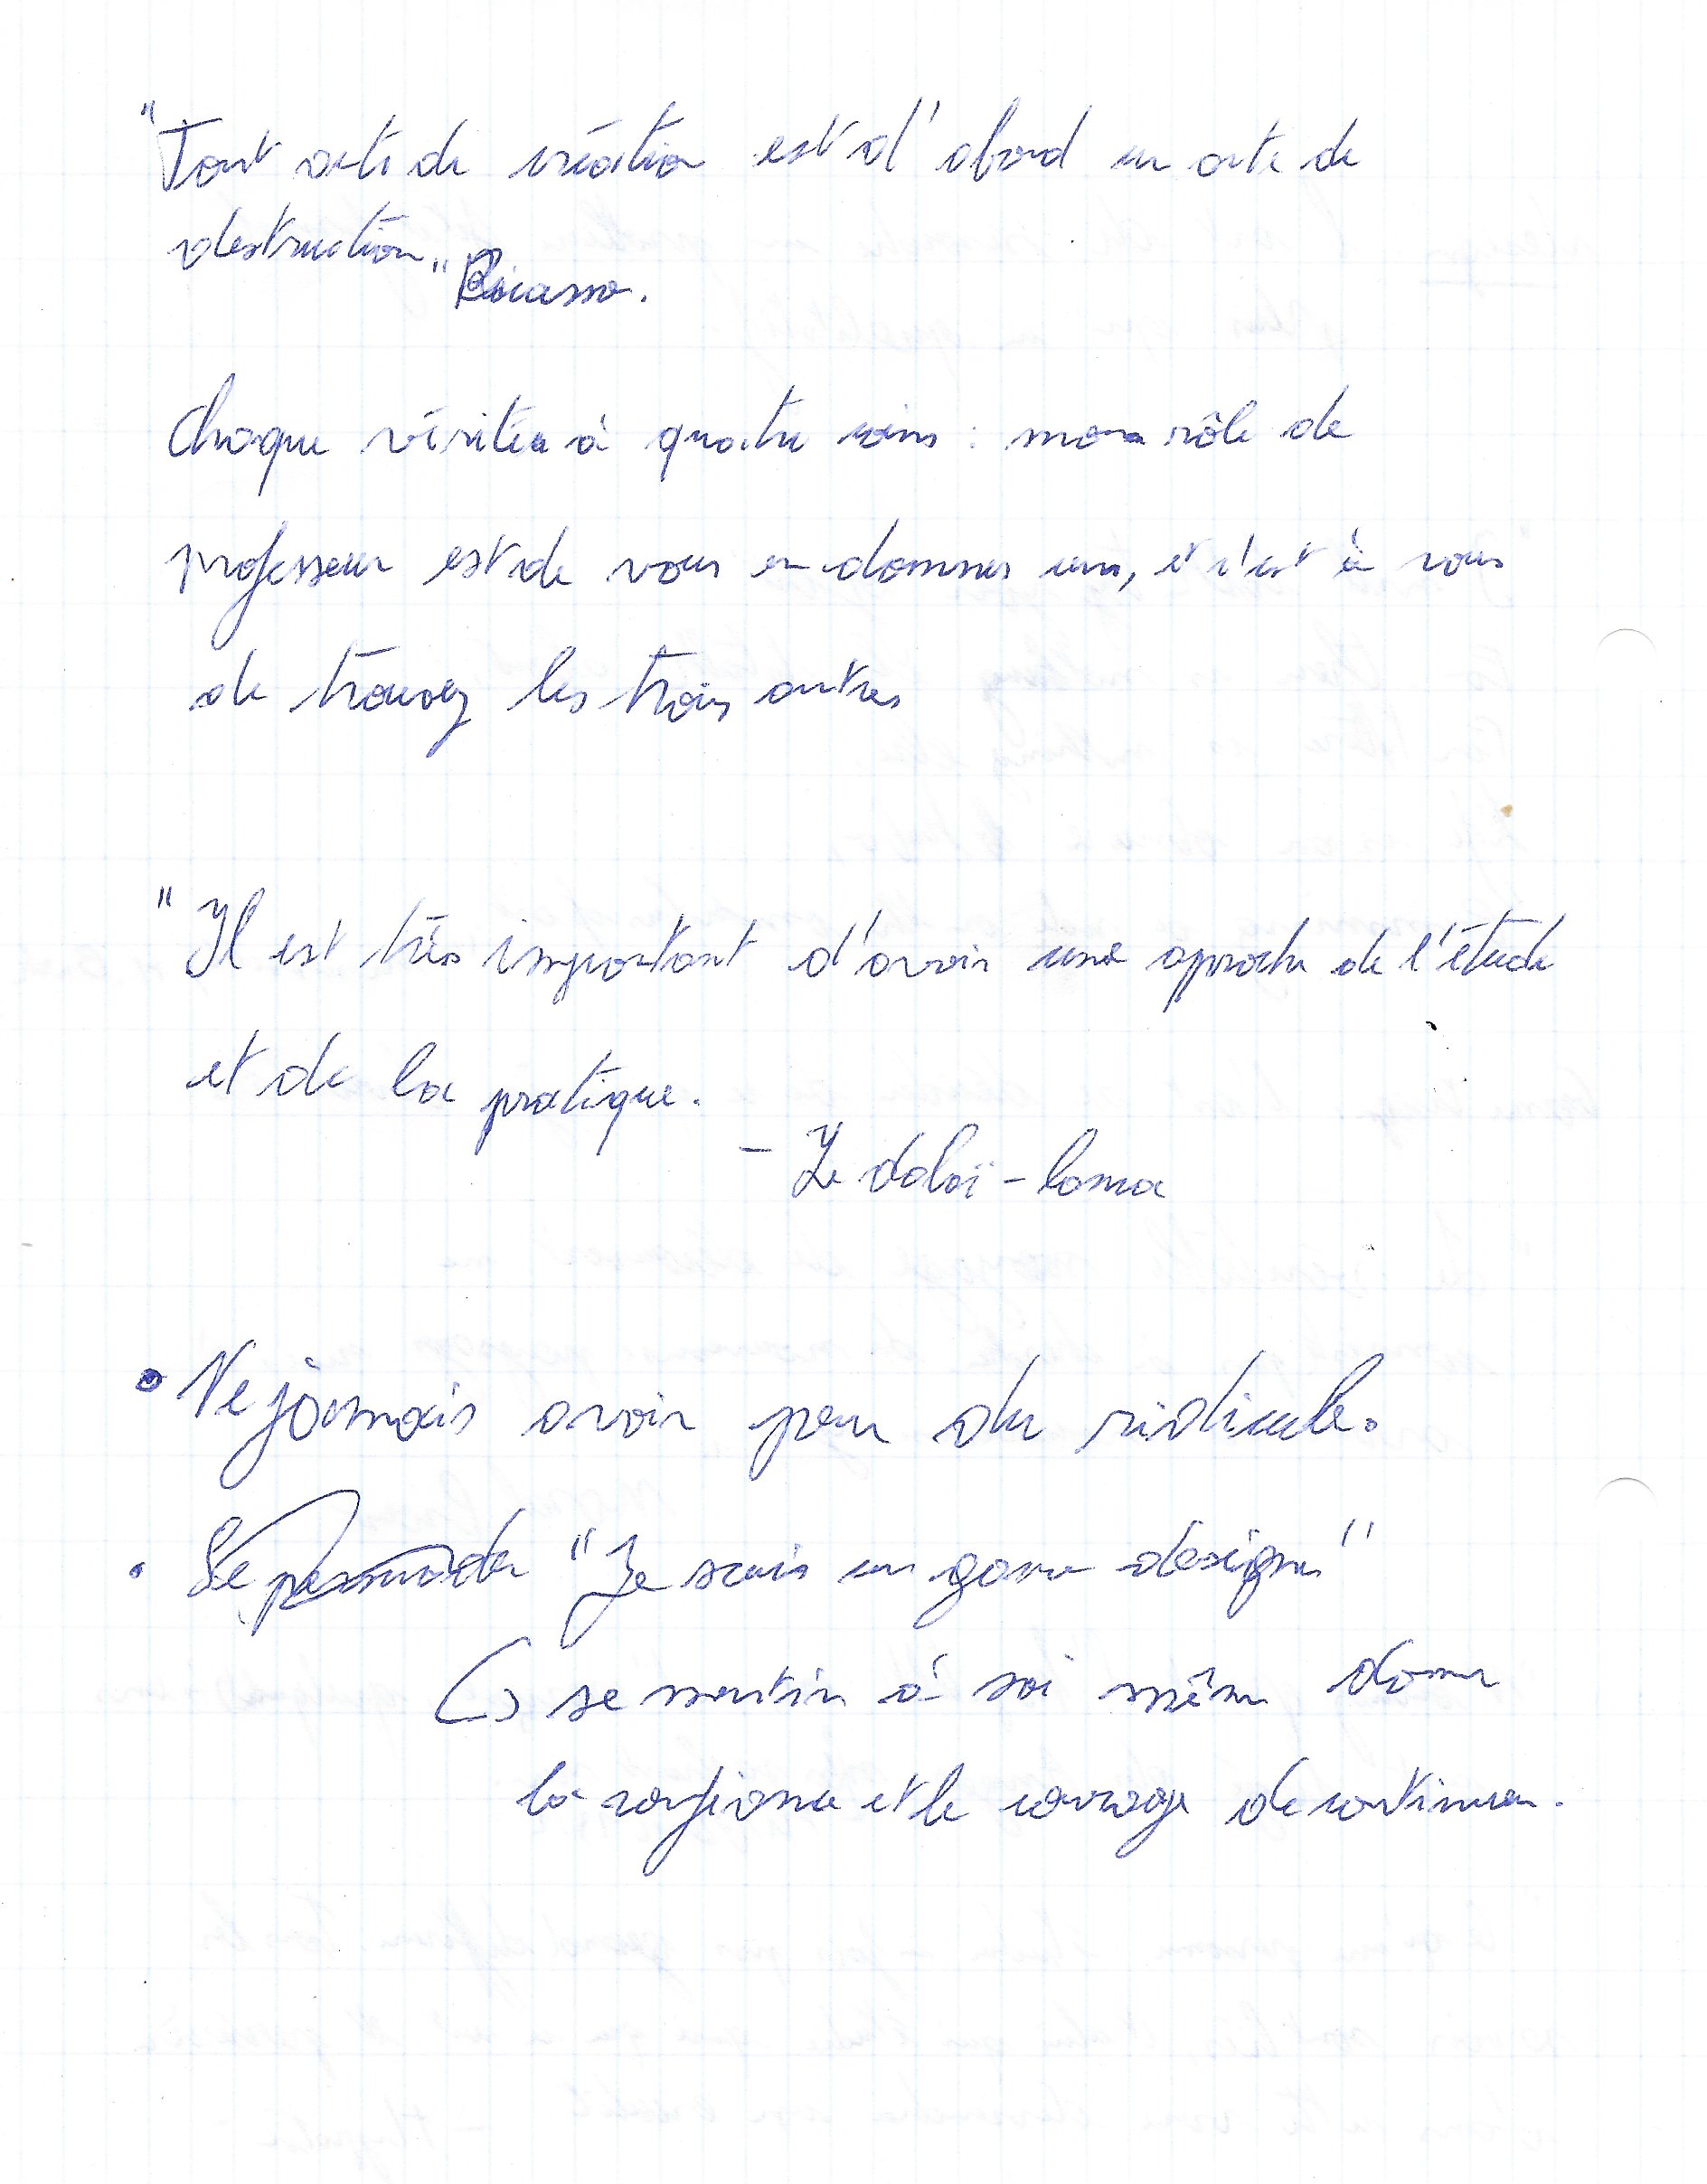 "Tout acte de création est d'abord un acte de
destruction" Picasso.
Chaque vérité a quatre coins : mon rôle de
professeur est de vous en donner un, et c'est à vous
de trouver les trois autres
"Il est très important d'avoir une aproche de l'étude
et de la pratique.
- Le dalaï-lama
• Ne jamais avoir peur du ridicule.
• Se persuader "Je suis un game designer"
↳ se mentir à soi même donne
la confiance et le courage de continuer.